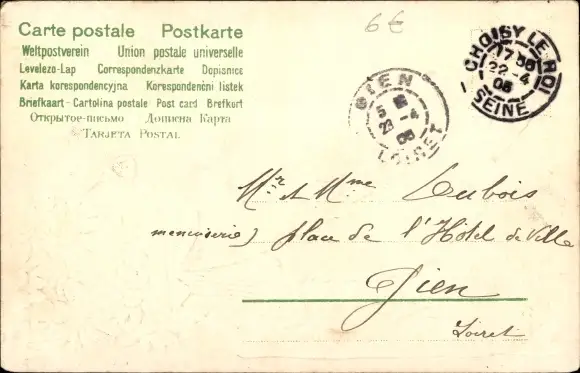 6€
Carte postale Postkarte
Weltpostverein Union postale universelle
Levelezo-Lap Correspondenzkarte Dopisnice
Karta korespondencyjna Korespondenční listek
Briefkaart - Cartolina postale Post card Brefkort
Открытое-письмо Дописна Карта
TARJETA POSTAL
CHOISY LE ROI
22-4
05
SEINE
GIEN
LOIRET
Mr et Mme Dubois
menuiserie) place de l'Hôtel de Ville
Gien
Loiret